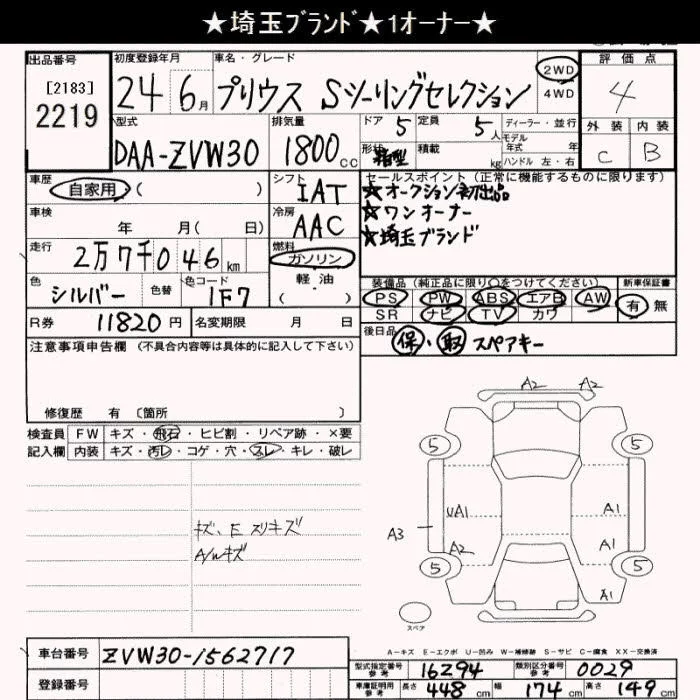 ★埼玉ブランド★1オーナー★
出品番号 初度登録年月 車名・グレード 2WD 評価点
[2183]
2219
24年6月 プリウス Sツーリングセレクション 4WD 4
型式 排気量 ドア 定員 ディーラー・並行 外装 内装
DAA-ZVW30 1800cc 5 5人 モデル年式 年 C B
形状 箱型 積載 kg ハンドル 左・右
車歴 シフト セールスポイント(正常に機能するものに限ります)
自家用( ) IAT ★オークション初出品
車検 冷房 ★ワンオーナー
年 月( 日) AAC ★埼玉ブランド
走行 燃料
2万7千046km ガソリン
軽・油
( )
色 色替 色コード 装備品(純正品に限り○をつけてください) 新車保証書
シルバー 1F7 PS PW ABS エアB AW 有 無
SR ナビ TV カワ
R券 11820円 名変期限 月 日 後日品 保・取 スペアキー
注意事項申告欄(不具合内容等は具体的に記入して下さい)
修復歴 有 〔箇所 〕
検査員 FW キズ・飛石・ヒビ割・リペア跡・×要
記入欄 内装 キズ・汚レ・コゲ・穴・スレ・キレ・破レ
キズ、E スリキズ
A/Wキズ
A2 A2
5 5
UA1 A1
A3
A2 A1
5 5
A1
スペア
A-キズ E-エクボ U-凹み W-補修跡 S-サビ C-腐食 XX-交換済
車台番号 ZVW30-1562717
登録番号
型式指定番号 参考 16294 類別区分番号 参考 0029
車庫証明用 参考 長さ 448cm 幅 174cm 高さ 149cm